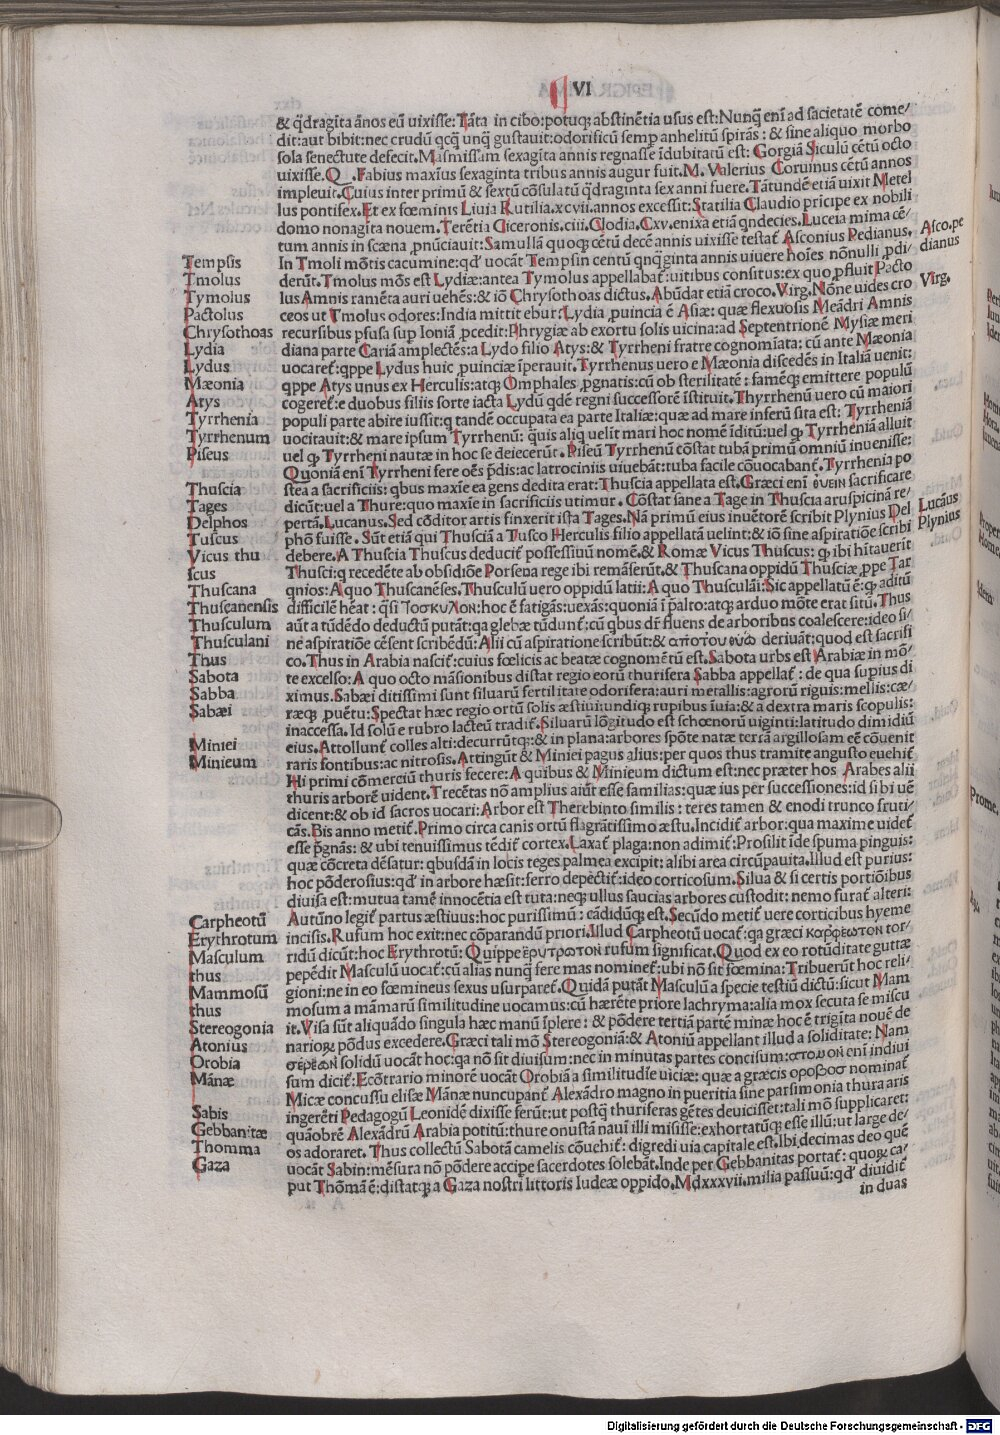 VI
& q̃dragĩta ãnos eũ uixisse: Tãta in cibo: potuqꝫ abstinẽtia usus est: Nunq̃ enĩ ad sacietatẽ come/
dit: aut bibit: nec crudũ qcq̃ unq̃ gustauit: odorificũ semꝑ anhelitũ spirãs: & sine aliquo morbo
sola senectute defecit. Masmissam sexagĩta annis regnasse ĩdubitatũ est: Gorgiã Siculũ cẽtũ octo
uixisse. Q. Fabius maxĩus sexaginta tribus annis augur fuit. M. Valerius Coruinus cẽtũ annos
impleuit. Cuius inter primũ & sextũ cõsulatũ q̃draginta sex anni fuere. Tãtundẽ etiã uixit Metel
lus pontifex. Et ex fœminis Liuia Rutilia. xcvii. annos excessit: Statilia Claudio pricipe ex nobili
domo nonagĩta nouem. Terẽtia Ciceronis. ciii. Clodia. Cxv. enixa etiã qndecies. Luceia mima cẽ/
tum annis in scæna ꝓnũciauit: Samullã quoqꝫ cẽtũ decẽ annis uixisse testat̃ Asconius Pedianus.
Asco. pe
dianus
Tempsis In Tmoli mõtis cacumine: qd̃ uocãt Tempsin centũ qnq̃ginta annis uiuere hoĩes nõnulli ꝓdi/
Tmolus derũt. Tmolus mõs est Lydiæ: antea Tymolus appellabat̃: uitibus consitus: ex quo ꝓfluit Pacto
Tymolus lus Amnis ramẽta auri uehẽs: & iõ Chrysothoas dictus. Abũdat etiã croco. Virg. Nõne uides cro
Virg.
Pactolus ceos ut Tmolus odores: India mittit ebur: Lydia ꝓuincia ẽ Asiæ: quæ flexuosis Meãdri Amnis
Chrysothoas recursibus ꝑfusa sup Ioniã ꝓcedit: Phrygiæ ab exortu solis uicina: ad Septentrionẽ Mysiæ meri
Lydia diana parte Cariã amplectẽs: a Lydo filio Atys: & Tyrrheni fratre cognomĩata: cũ ante Mæonia
Lydus uocaret̃: qppe Lydus huic ꝓuinciæ ĩperauit. Tyrrhenus uero e Mæonia discedẽs in Italiã uenit:
Mæonia qppe Atys unus ex Herculis: atqꝫ Omphales ꝓgnatis: cũ ob sterilitatẽ: famẽqꝫ emittere populũ
Atys cogeret̃: e duobus filiis sorte iacta Lydũ qdẽ regni successorẽ ĩstituit. Thyrrhenũ uero cũ maiori
Tyrrhenia populi parte abire iussit: q tandẽ occupata ea parte Italiæ: quæ ad mare inferũ sita est: Tyrrheniã
Tyrrhenum uocitauit: & mare ipsum Tyrrhenũ: q̃uis aliq uelĩt mari hoc nomẽ ĩditũ: uel ꝙ Tyrrheniã alluit
Piseus uel ꝙ Tyrrheni nautæ in hoc se deiecerũt. Piseũ Tyrrhenũ cõstat tubã primũ omniũ inuenisse:
Quoniã enĩ Tyrrheni fere oẽs p̃dis: ac latrociniis uiuebãt: tuba facile cõuocabant̃. Tyrrhenia po
Thuscia stea a sacrificiis: qbus maxĩe ea gens dedita erat: Thuscia appellata est. Græci enĩ θυειν sacrificare
Tages dicũt: uel a Thure: quo maxĩe in sacrificiis utimur. Cõstat sane a Tage in Thuscia aruspicinã re/
Delphos pertã. Lucanus. Sed cõditor artis finxerit ista Tages. Nã primũ eius inuẽtorẽ scribit Plynius Del
Lucãus
Tuscus phõ fuisse. Sũt etiã qui Thusciã a Tusco Herculis filio appellatã uelint: & iõ sine aspiratiõe scribi
Plynius
Vicus thu debere. A Thuscia Thuscus deducit̃ possessiuũ nomẽ. & Romæ Vicus Thuscus: ꝙ ibi hĩtauerĩt
scus Thusci: q recedẽte ab obsidiõe Porsena rege ibi remãserũt. & Thuscana oppidũ Thusciæ ꝓpe Tar
Thuscana qnios: A quo Thuscanẽses. Thusculũ uero oppidũ latii: A quo Thusculãi: Sic appellatũ ẽ: ꝙ aditũ
Thuscanensis difficilẽ hẽat: q̃si Τοσκυλον: hoc ẽ fatigãs: uexãs: quoniã ĩ p̃alto: atqꝫ arduo mõte erat sitũ. Thus
Thusculum aũt a tũdẽdo deductũ putãt: qa glebæ tũdunt̃: cũ qbus dr̃ fluens de arboribus coalescere: ideo si/
Thusculani ne aspiratiõe cẽsent scribẽdũ: Alii cũ aspiratione scribũt: & απο του θυω deriuãt: quod est sacrifi
Thus co. Thus in Arabia nascit̃: cuius fœlicis ac beatæ cognomẽtũ est. Sabota urbs est Arabiæ in mõ/
Sabota te excelso: A quo octo mãsionibus distat regio eorũ thurifera Sabba appellat̃: de qua supius di
Sabba ximus. Sabæi ditissimi sunt siluarũ fertilitate odorifera: auri metallis: agrorũ riguis: mellis: cæ/
Sabæi ræqꝫ ꝓuẽtu: Spectat hæc regio ortũ solis æstiui: undiqꝫ rupibus ĩuia: & a dextra maris scopulis:
inaccessa. Id solũ e rubro lacteũ tradit̃. Siluarũ lõgitudo est schœnorũ uiginti: latitudo dimidiũ
Miniei eius. Attollunt̃ colles alti: decurrũtqꝫ: & in plana: arbores spõte natæ terrã argillosam eẽ cõuenit
Minieum raris fontibus: ac nitrosis. Attingũt & Miniei pagus alius: per quos thus tramite angusto euehit̃
Hi primi cõmerciũ thuris fecere: A quibus & Minieum dictum est: nec præter hos Arabes alii
thuris arborẽ uident. Trecẽtas nõ amplius aiũt esse familias: quæ ius per successiones: id si bi uẽ
dicent: & ob id sacros uocari: Arbor est Therebinto similis: teres tamen & enodi trunco fruti/
cãs. Bis anno metit̃. Primo circa canis ortũ flagrãtissimo æstu. Incidit̃ arbor: qua maxime uidet̃
esse p̃gnãs: & ubi tenuissimus tẽdit̃ cortex. Laxat̃ plaga: non adimit̃: Prosilit ĩde spuma pinguis:
quæ cõcreta dẽsatur: qbusdã in locis teges palmea excipit: alibi area circũpauita. Illud est purius:
hoc põderosius: qd̃ in arbore hæsit: ferro depectit̃: ideo corticosum. Silua & si certis portiõibus
diuisa est: mutua tamẽ innocẽtia est tuta: neqꝫ ullus saucias arbores custodit: nemo furat̃ alteri:
Carpheotũ Autũno legit̃ partus æstiuus: hoc purissimũ: cãdidũqꝫ est. Secũdo metit̃ uere corticibus hyeme
Erythrotum incisis. Rufum hoc exit: nec cõparandũ priori. Illud Carpheotũ uocat̃: qa græci καρφεωτον tor/
Masculum ridũ dicũt: hoc Erythrotũ: Quippe ερυτρωτον rufum significat. Quod ex eo rotũditate guttæ
thus pepẽdit Masculũ uocat̃: cũ alias nunq̃ fere mas nominet̃: ubi nõ sit fœmina: Tribuerũt hoc reli/
Mammosũ gioni: ne in eo fœmineus sexus usurparet̃. Quidã putãt Masculũ a specie testiũ dictũ: sicut Mam
thus mosum a mãmarũ similitudine uocamus: cũ hærẽte priore lachryma: alia mox secuta se miscu
Stereogonia it. Visa sũt aliquãdo singula hæc manũ ĩplere: & põdere tertiã partẽ minæ hoc ẽ trigĩta nouẽ de
Atonius narioꝝ põdus excedere. Græci tali mõ Stereogoniã: & Atoniũ appellant illud a soliditate: Nam
Orobia στερεων solidũ uocãt hoc: qa nõ sit diuisum: nec in minutas partes concisum: ατομον enĩ indiui
Mãnæ sum dicit̃: Ecõtrario minorẽ uocãt Orobiã a similitudĩe uiciæ: quæ a græcis οροβοσ nominat̃
Micæ concussu elisæ Mãnæ nuncupant̃. Alexãdro magno in pueritia sine parsimonia thura aris
Sabis ingerẽti Pedagogũ Leonidẽ dixisse ferũt: ut postq̃ thuriferas gẽtes deuicisset: tali mõ supplicaret:
Gebbanitæ quãobrẽ Alexãdrũ Arabia potitũ: thure onustã nauĩ illi misisse: exhortatũqꝫ esse illũ: ut large de/
Thomma os adoraret. Thus collectũ Sabotã camelis cõuehit̃: digredi uia capitale est. Ibi decimas deo quẽ
Gaza uocãt Sabin: mẽsura nõ põdere accipe sacerdotes solebãt. Inde per Gebbanitas portat̃: quoꝝ ca/
put Thõmã ẽ: distatqꝫ a Gaza nostri littoris Iudeæ oppido. Mdxxxvii. milia passuũ: qd̃ diuidit̃
in duas
Digitalisierung gefördert durch die Deutsche Forschungsgemeinschaft - DFG